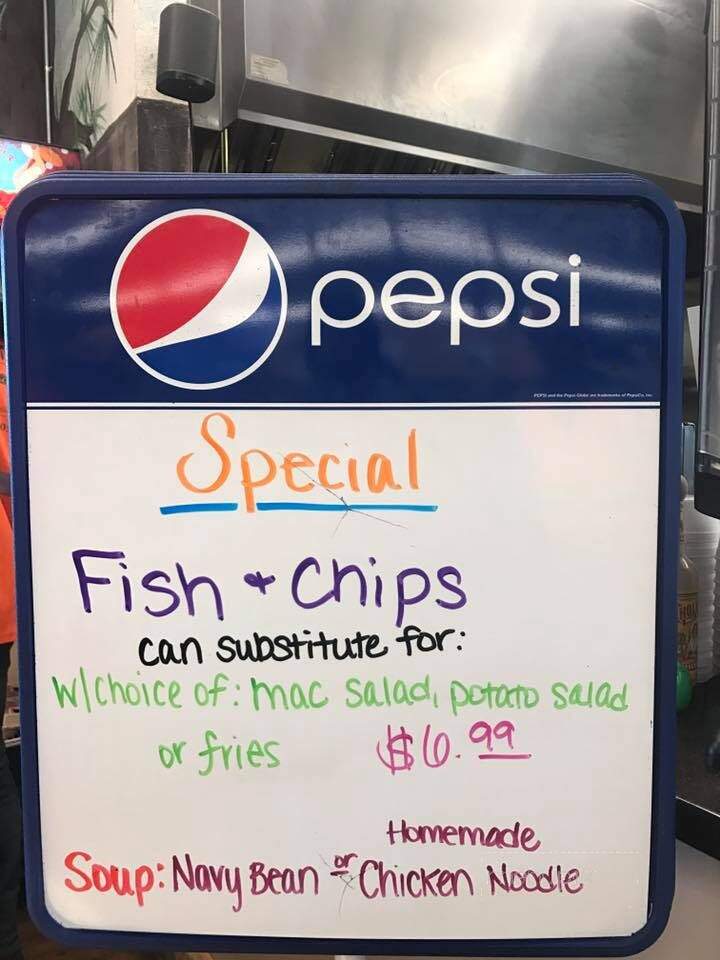 pepsi
PEPSI and the Pepsi Globe are trademarks of PepsiCo, Inc.
Special
Fish + Chips
can substitute for:
w/choice of: mac salad, potato salad
or fries $6.99
Homemade
Soup: Navy Bean or Chicken Noodle